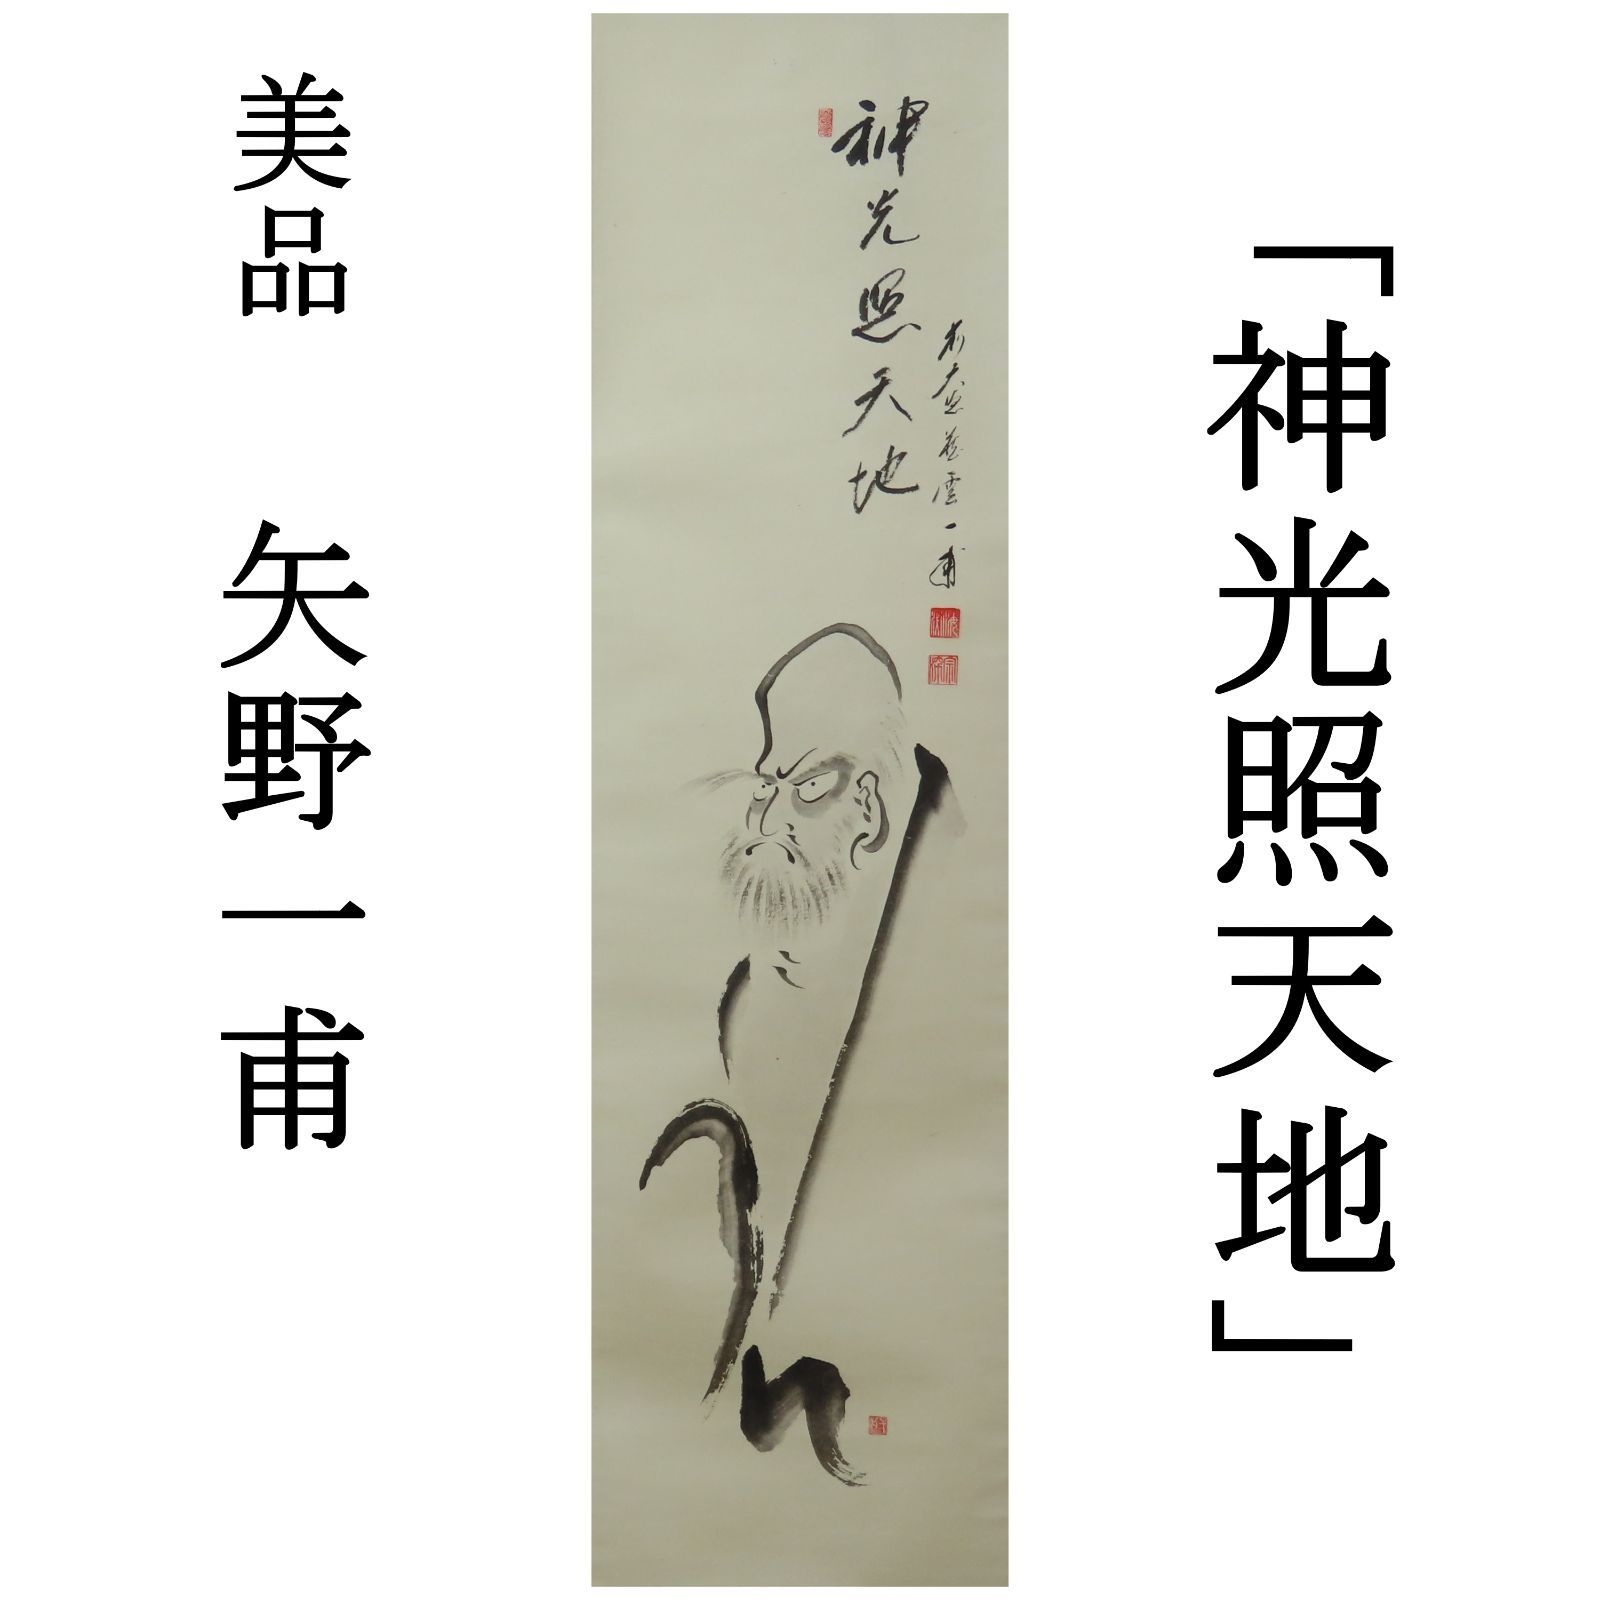 「神光照天地」
神光照天地
一甫
美品 矢野一甫